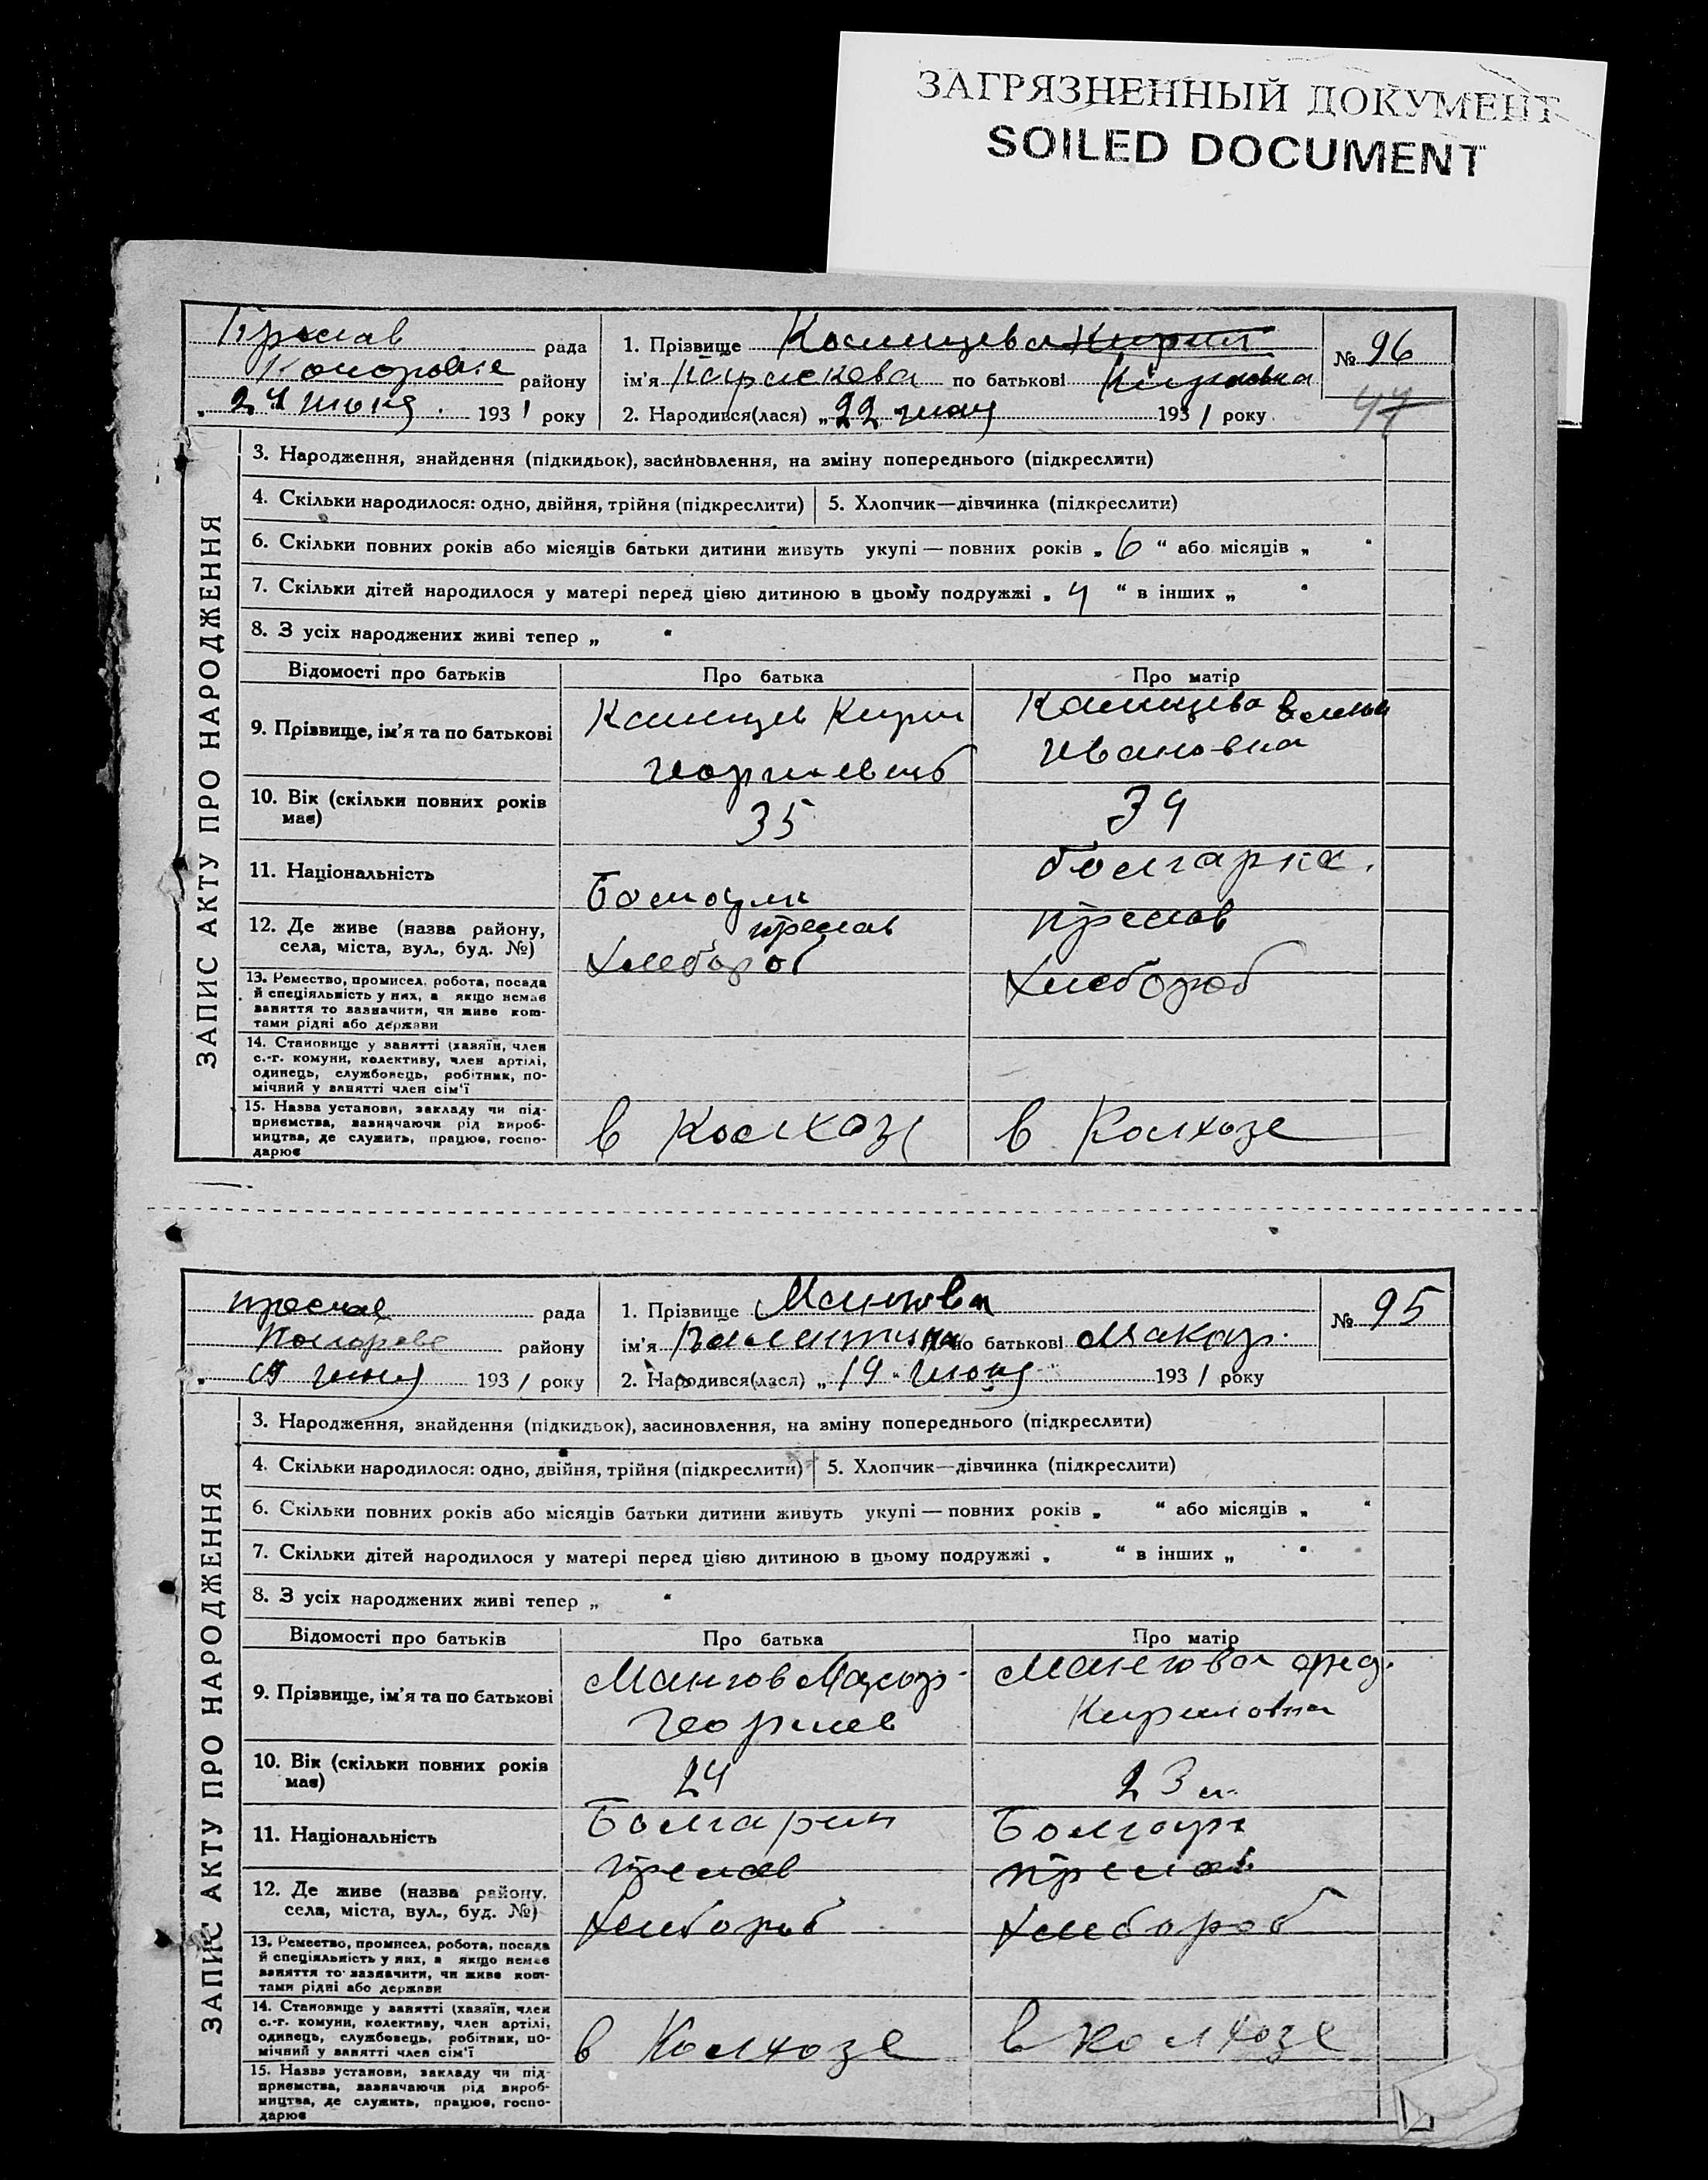 ЗАГРЯЗНЕННЫЙ ДОКУМЕНТ
SOILED DOCUMENT
Преслав рада
району
„24 июня 1931 року
1. Прізвище
ім'я по батькові
2. Народився(лася) „22 июня 1931 року
№ 96
ЗАПИС АКТУ ПРО НАРОДЖЕННЯ
3. Народження, знайдення (підкидьок), засиновлення, на зміну попереднього (підкреслити)
4. Скільки народилося: одно, двійня, трійня (підкреслити) 5. Хлопчик—дівчинка (підкреслити)
6. Скільки повних років або місяців батьки дитини живуть укупі — повних років „ 6 “ або місяців „ “
7. Скільки дітей народилося у матері перед цією дитиною в цьому подружжі „ 4 “ в інших „ “
8. З усіх народжених живі тепер „ “
Відомості про батьків Про батька Про матір
9. Прізвище, ім'я та по батькові
Кирил
Георгиевич
Ивановна
10. Вік (скільки повних років має) 35 34
11. Національність болгарка.
12. Де живе (назва району, села, міста, вул., буд. №) преслав преслав
Хлебороб Хлебороб
13. Ремество, промисел, робота, посада й спеціяльність у них, а якщо немає заняття то зазначити, чи живе коштами рідні або держави
14. Становище у занятті (хазяїн, член с.-г. комуни, колективу, член артілі, одинець, службовець, робітник, помічний у занятті член сім'ї
15. Назва установи, закладу чи підприємства, зазначаючи рід виробництва, де служить, працює, господарює
в Колхозе в Колхозе
преслав рада
району
„19 июня 1931 року
1. Прізвище Мангова
ім'я Валентина по батькові Макар.
2. Народився(лася) „19 “ Июня 1931 року
№ 95
ЗАПИС АКТУ ПРО НАРОДЖЕННЯ
3. Народження, знайдення (підкидьок), засиновлення, на зміну попереднього (підкреслити)
4. Скільки народилося: одно, двійня, трійня (підкреслити) 5. Хлопчик—дівчинка (підкреслити)
6. Скільки повних років або місяців батьки дитини живуть укупі — повних років „ “ або місяців „ “
7. Скільки дітей народилося у матері перед цією дитиною в цьому подружжі „ “ в інших „ “
8. З усіх народжених живі тепер „ “
Відомості про батьків Про батька Про матір
9. Прізвище, ім'я та по батькові
Мангов Макар. Мангова
Георгиев Кириловна
10. Вік (скільки повних років має) 24 23
11. Національність Болгарин Болгар
преслав преслав
12. Де живе (назва району, села, міста, вул., буд. №)
Хлебороб Хлебороб
13. Ремество, промисел, робота, посада й спеціяльність у них, а якщо немає заняття то зазначити, чи живе коштами рідні або держави
14. Становище у занятті (хазяїн, член с.-г. комуни, колективу, член артілі, одинець, службовець, робітник, помічний у занятті член сім'ї
в Колхозе в колхозе
15. Назва установи, закладу чи підприємства, зазначаючи рід виробництва, де служить, працює, господарює